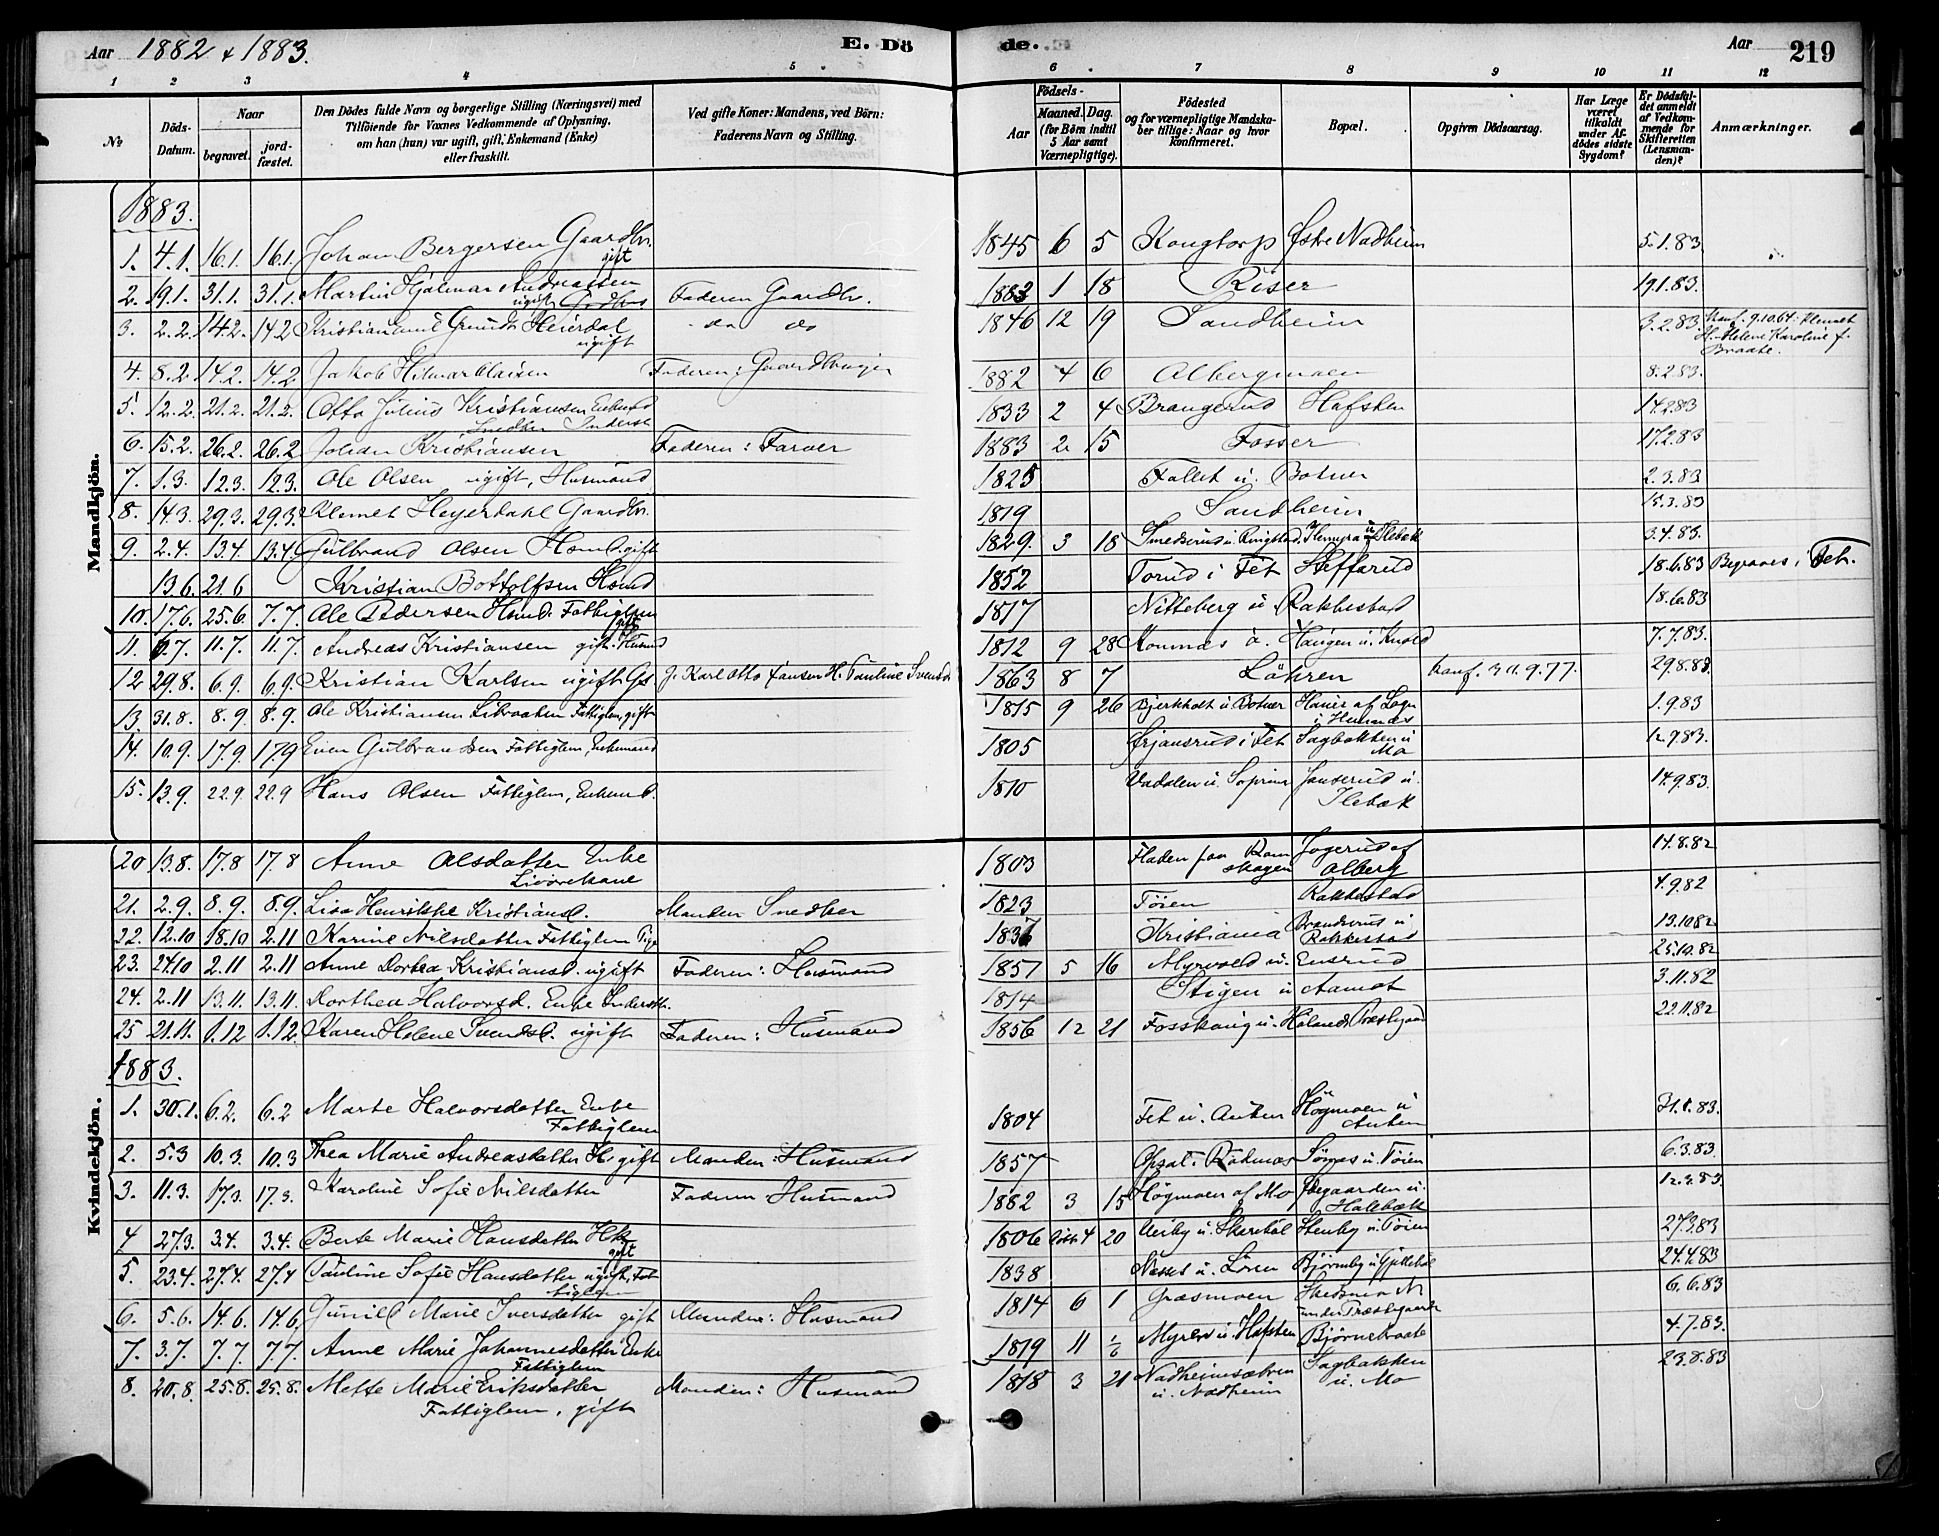 Aar 1882 & 1883. E. Dö
de. Aar 219
1 2 3 4 5 6 7 8 9 10 11 12
No Döds-Datum. Naar begravet. jordfæstet. Den Dödes fulde Navn og borgerlige Stilling (Næringsvei) med Tilföiende for Voxnes Vedkommende af Oplysning, om han (hun) var ugift, gift, Enkemand (Enke) eller fraskilt. Ved gifte Koner: Mandens, ved Börn: Faderens Navn og Stilling.
Aar Födsels- Maaned. Dag. (for Börn indtil 5 Aar samt Værnepligtige). Födested og for værnepligtige Mandskaber tillige: Naar og hvor konfirmeret. Bopæl. Opgiven Dödsaarsag. Har Læge været tilkaldt under Afdödes sidste Sygdom? Er Dödsfaldet anmeldt af Vedkommende for Skifteretten (Lensmanden)? Anmærkninger.
Mandkjön.
1883.
1. 4.1. 16.1. 16.1. Johan Bergersen Gaardbr. gift 1845 6 5 Kongtorp Østre Nadheim 5.1.83
2. 19.1. 31.1. 31.1. Martin Hjalmar Andreassen Faderen Gaardbr. 1883 1 18 Riser 19.1.83.
3. 2.2. 14.2. 14.2 Kristian Emil Heierdal ugift do do 1846 12 19 Sandheim 3.2.83. Konf. 9.10.64. Klemet H. Helene Karoline f. Braate.
4. 8.2. 14.2. 14.2 Jakob Hilmar Claisen Faderen: Gaardbruger 1882 4 6 Albergmoen 8.2.83.
5. 12.2. 21.2. 21.2. Otto Julius Kristiansen Enkemd Snedker Inderst 1833 2 4 Brangerud Hafsten 14.2.83
6. 15.2. 26.2. 26.2 Johan Kristiansen Faderen: Farver 1883 2 15 Fosser 17.2.83
7. 1.3. 12.3. 12.3. Ole Olsen ugift, Husmand 1825 Fallet u. Botner 2.3.83
8. 14.3. 29.3. 29.3. Klemet Heyerdahl Gaardbr. 1819 Sandheim 15.3.83
9. 2.4. 13.4. 13.4. Gulbrand Olsen gift 1829. 3 18 Smedsrud u. Ringstad. u Ilebæk 3.4.83.
13.6. 21.6 Kristian Bottolfsen Hsmd 1852 Torud i Fet Steffarud 18.6.83 Begraves i Fet.
10. 17.6. 25.6. 7.7. Ole Pedersen Hsmd. Fattiglem gift 1817 Nitteberg u Rakkestad 18.6.83
11. 6.7. 11.7. 11.7. Andreas Kristiansen gift. Husmd 1812 9 28 Haugen u. 7.7.83.
12 29.8. 6.9. 6.9. Kristian Karlsen ugift Gs J. Karl Otto Jansen H. Pauline Svendsd 1863 8 7 Löhren Konf. 30.9.77. 29.8.83
13. 31.8. 8.9. 8.9. Ole Kristiansen Fattiglem, gift 1815 9 26 Bjerkholt u Botner af i Hemnæs 1.9.83
14. 10.9. 17.9. 17.9 Even Gulbrandsen Fattiglem, Enkemand 1805 Ørjansrud i Fet Sagbakken u Mo 12.9.83.
15. 13.9. 22.9. 22.9 Hans Olsen Fattiglem, Enkemd. 1810 Vadalen u. Soprim Janserud u. Ilebæk 14.9.83.
Kvindekjön.
20 13.8. 17.8 17.8 Anne Olsdatter Enke Livörekone 1803 Fladen paa Romskogen Jogerud af Alberg 14.8.82
21. 2.9. 8.9. 8.9. Lisa Henrikke Kristiansd. Manden Snedker 1823 Töien Rakkestad 4.9.82
22. 12.10 18.10 2.11 Karine Nilsdatter Fattiglem Pige 1837 Kristiania Brandsrud u Rakkestad 13.10.82
23. 24.10 2.11 2.11 Anne Dorthea Kristiansd. ugift Faderen: Husmand 1857 5 16 Myrvold u. Ensrud 25.10.82
24. 2.11 13.11. 13.11. Dorthea Halvorsd. Enke Inderst 1814 Stigen u Aamot 3.11.82
25 21.11. 1.12 1.12. Karen Helene Svendsd. ugift Faderen: Husmand 1856 12 21 Fosskaug u. Hölands Præstegaard 22.11.82
1883.
1. 30.1. 6.2. 6.2 Marte Halvorsdatter Enke Fattiglem 1804 Fet u. Auten Högmoen u Auten 31.1.83.
2. 5.3 10.3. 10.3 Thea Marie Andreasdatter H. gift Manden: Husmand 1857 Opsal i Rödenæs Sörnæs u. Töien 6.3.83.
3. 11.3. 17.3. 17.3. Karoline Sofie Nilsdatter Faderen: Husmand 1882 3 15 Högmoen af Mo Ødegaarden u. Halebæk 12.3.83
4 27.3. 3.4. 3.4. Berte Marie Hansdatter Hk gift 1806 döbt 4 20 Viriby u. Skarstöl Stenby u. Töien 27.3.83
5. 23.4. 27.4. 27.4 Pauline Sofie Hansdatter ugift, Fattiglem 1838 Næsset u. Lören Bjönnby u 24.4.83
6. 5.6. 14.6. 14.6. Gunild Marie Iversdatter gift Manden: Husmand 1814 6 1 Græsmoen Skedsmo N. under Præstegaarden 6.6.83
7. 3.7. 7.7. 7.7. Anne Marie Johannesdatter Enke Fattiglem 1819 11 1/6 Myrerud u. Hafsten Björnebraate 4.7.83.
8. 20.8. 25.8. 25.8. Mette Marie Eriksdatter Fattiglem, gift Manden: Husmand 1818 3 21 Nadheimsætren u. Nadheim Sagbakken u. Mo 23.8.83